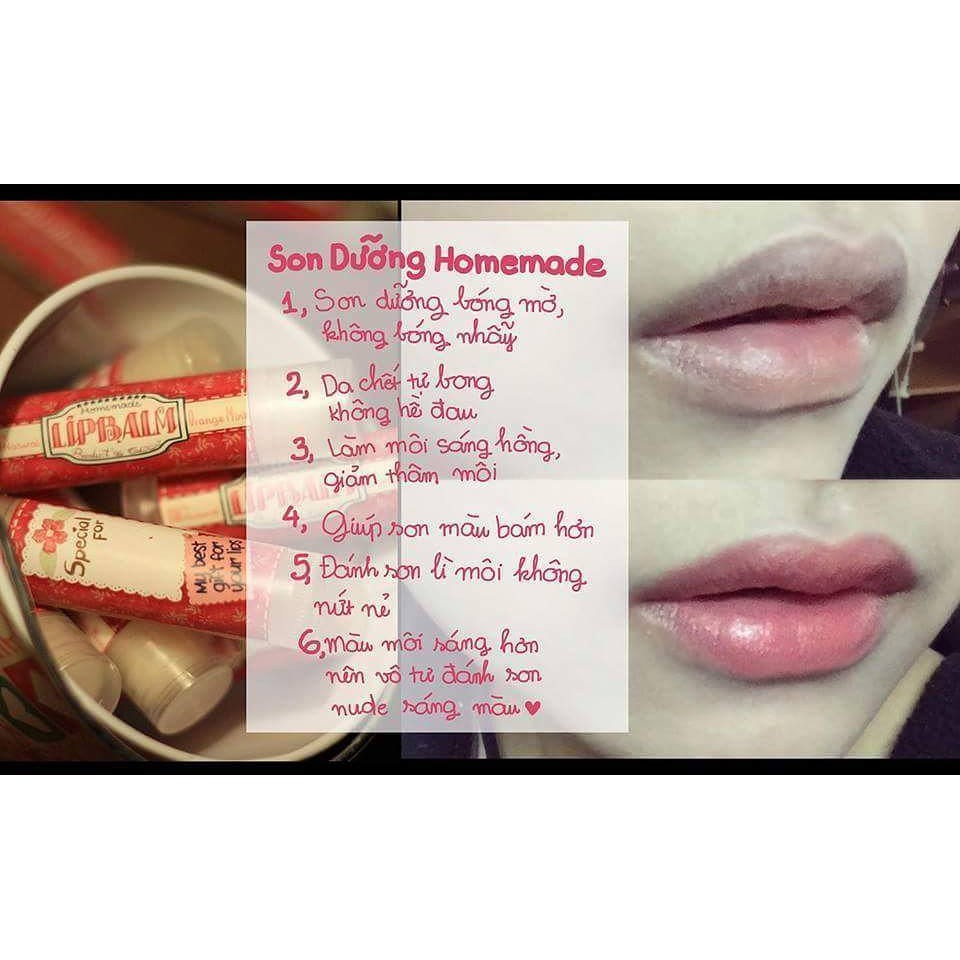 Son Dưỡng Homemade
1, Son dưỡng bóng mờ,
không bóng nhẫy
2, Da chết tự bong
không hề đau
3, Làm môi sáng hồng,
giảm thâm môi
4, Giúp son màu bám hơn
5, Đánh son lì môi không
nứt nẻ
6, Màu môi sáng hơn
nên vô tư đánh son
nude sáng màu ♥
Homemade
LIPBALM
Orange Mint
Natural
LIPBALM
Special
for
My best
gift for
your lips